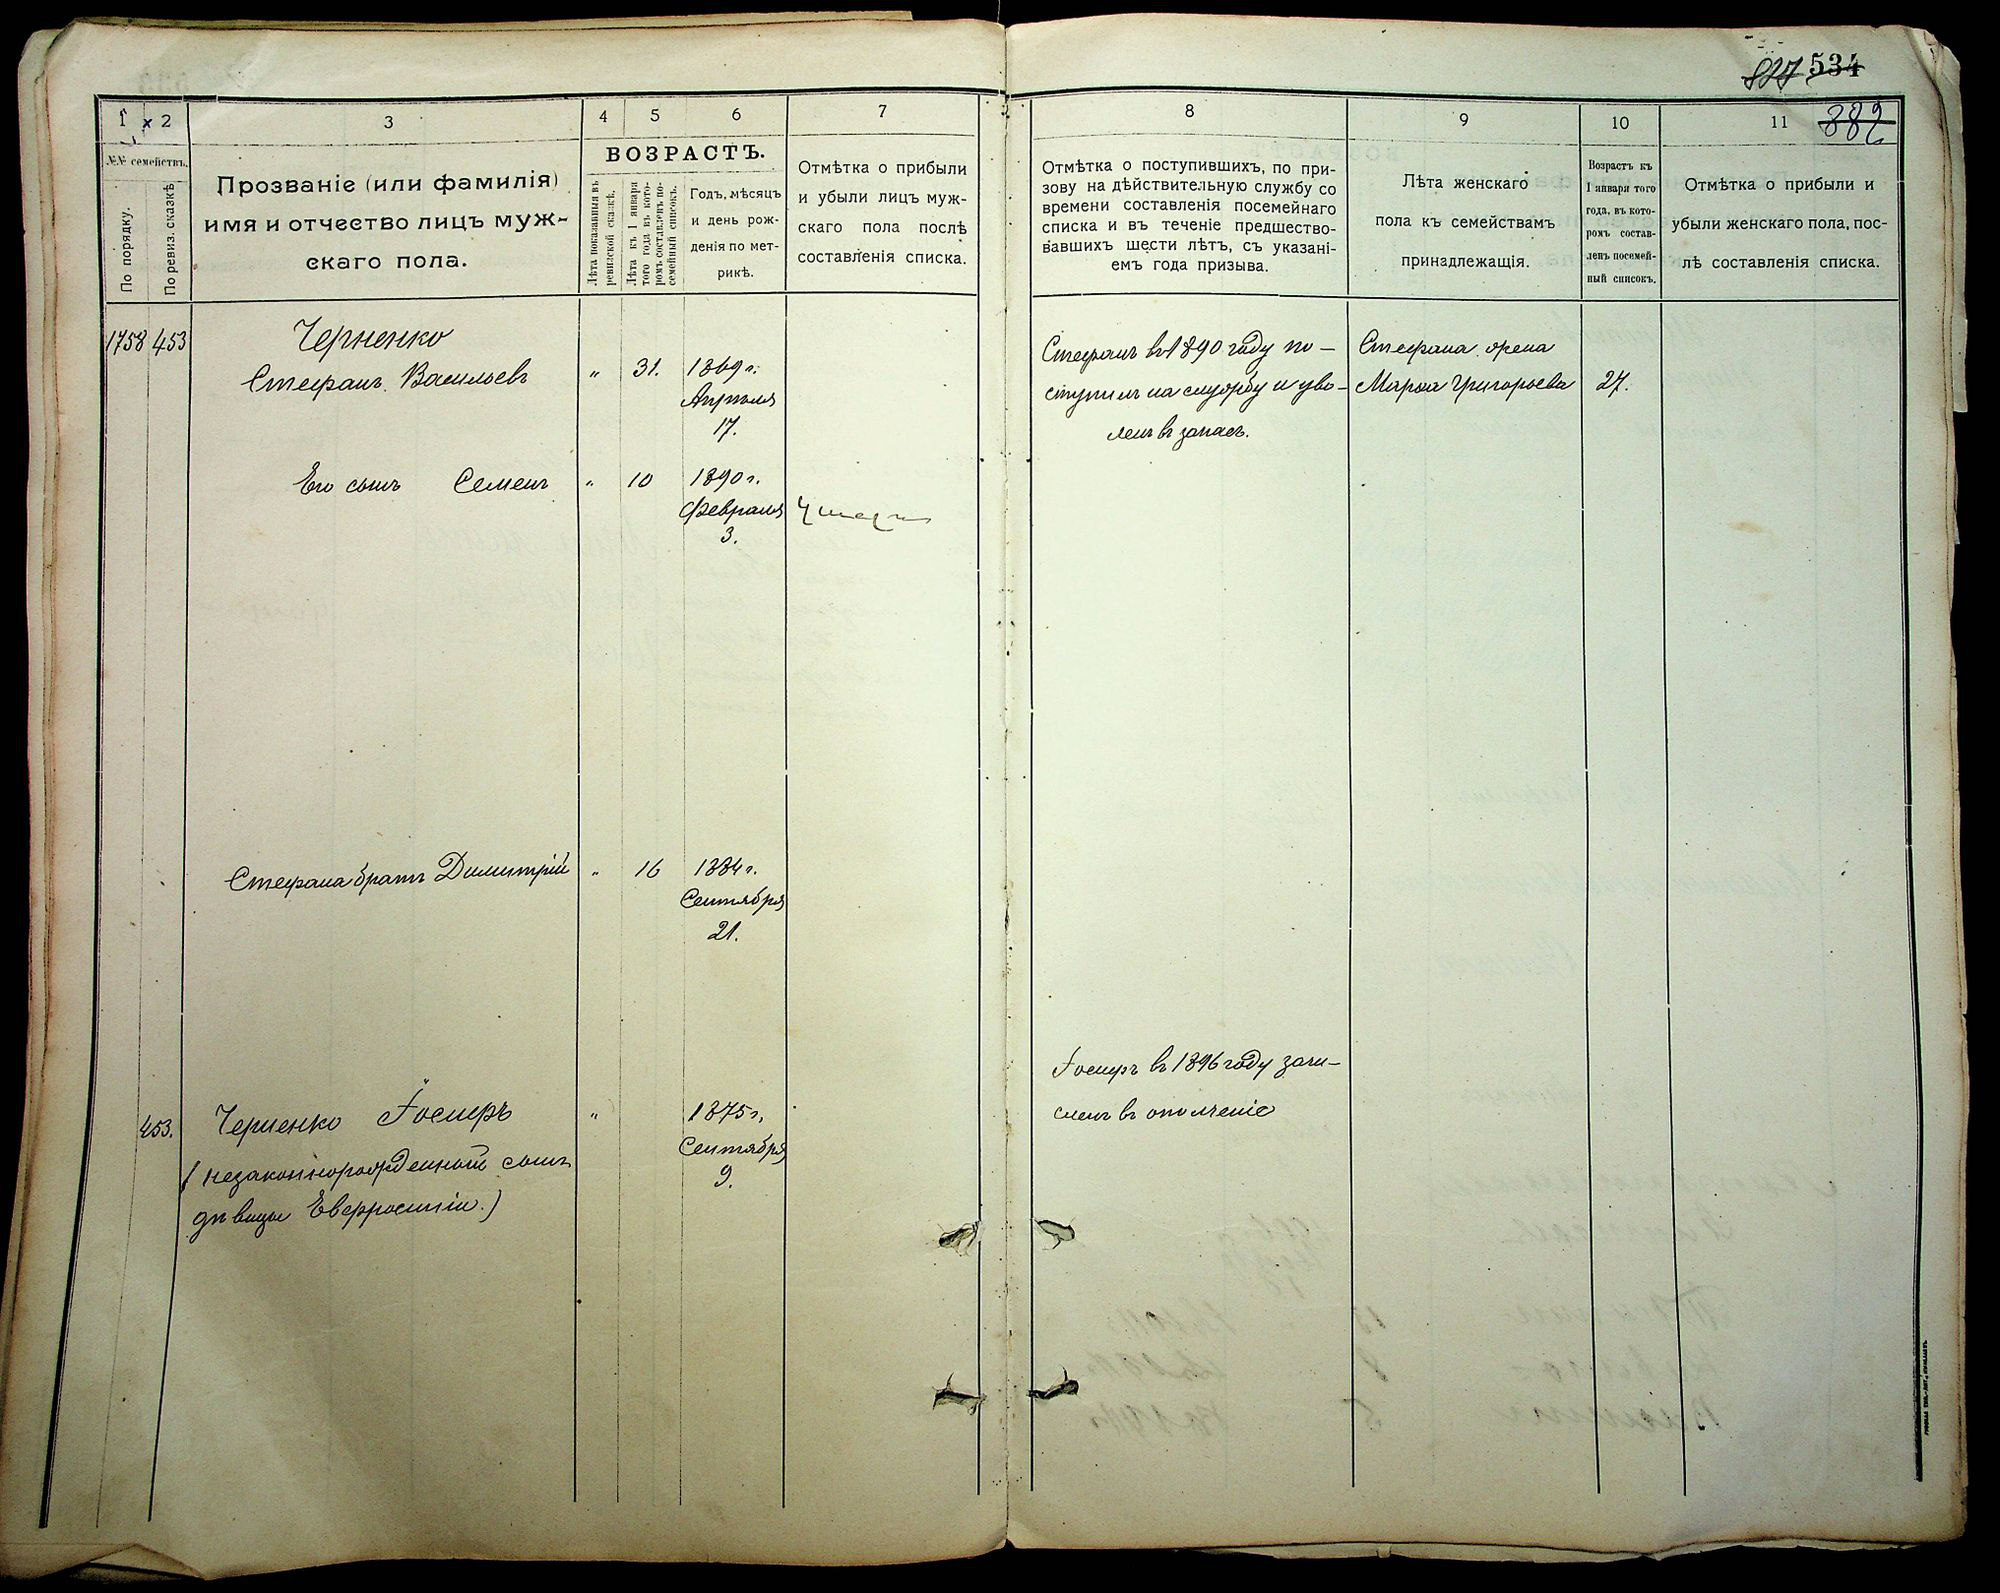 827 534
382
1 2 3 4 5 6 7 8 9 10 11
№№ семействъ.
По порядку.
По ревиз. сказкѣ
Прозваніе (или фамилія)
имя и отчество лицъ муж-
скаго пола.
ВОЗРАСТЪ.
Лѣта показанныя въ
ревизской сказкѣ.
Лѣта къ 1 января
того года въ кото-
ромъ составленъ по-
семейный списокъ.
Годъ, мѣсяцъ
и день рож-
денія по мет-
рикѣ.
Отмѣтка о прибыли
и убыли лицъ муж-
скаго пола послѣ
составленія списка.
Отмѣтка о поступившихъ, по при-
зову на дѣйствительную службу со
времени составленія посемейнаго
списка и въ теченіе предшество-
вавшихъ шести лѣтъ, съ указані-
емъ года призыва.
Лѣта женскаго
пола къ семействамъ
принадлежащія.
Возрастъ къ
1 января того
года, въ кото-
ромъ состав-
ленъ посемей-
ный списокъ.
Отмѣтка о прибыли и
убыли женскаго пола, пос-
лѣ составленія списка.
1758 453 Черненко
Стефанъ Васильевъ " 31. 1869 г.
Апрѣля
17.
Стефанъ въ 1890 году по-
ступилъ на службу и уво-
ленъ въ запасъ.
Стефана жена
Марѳа Григорьева 27.
Его сынъ Семенъ " 10 1890 г.
Февраля
3.
Стефана братъ Димитрій " 16 1884 г.
Сентября
21.
453. Черненко Іосифъ " 1875 г.
Сентября
9.
(незаконнорожденный сынъ
дѣвицы Евфросиніи.)
Іосифъ въ 1896 году зачи-
сленъ въ ополченіе